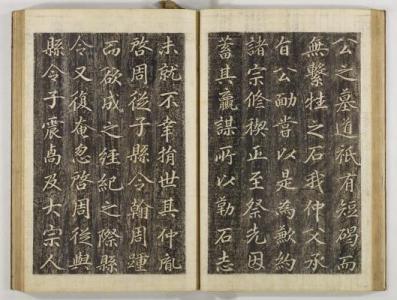 公之墓道祇有短碣而
無繫牲之石我仲父承
自公勔嘗以是為歉約
諸宗脩禊正至祭先因
蓄其贏謀所以勒石志
未就不幸捐世其仲胤
啓周從子縣令翰周踵
而欲成之經紀之際縣
令又復奄忽啓周從與
縣令子震卨及大宗人